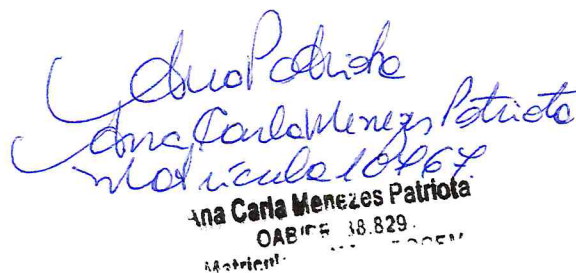 Ana Patriota
Ana Carla Menezes Patriota
Matrícula 10467
Ana Carla Menezes Patriota
OAB 38.829
Matrícul